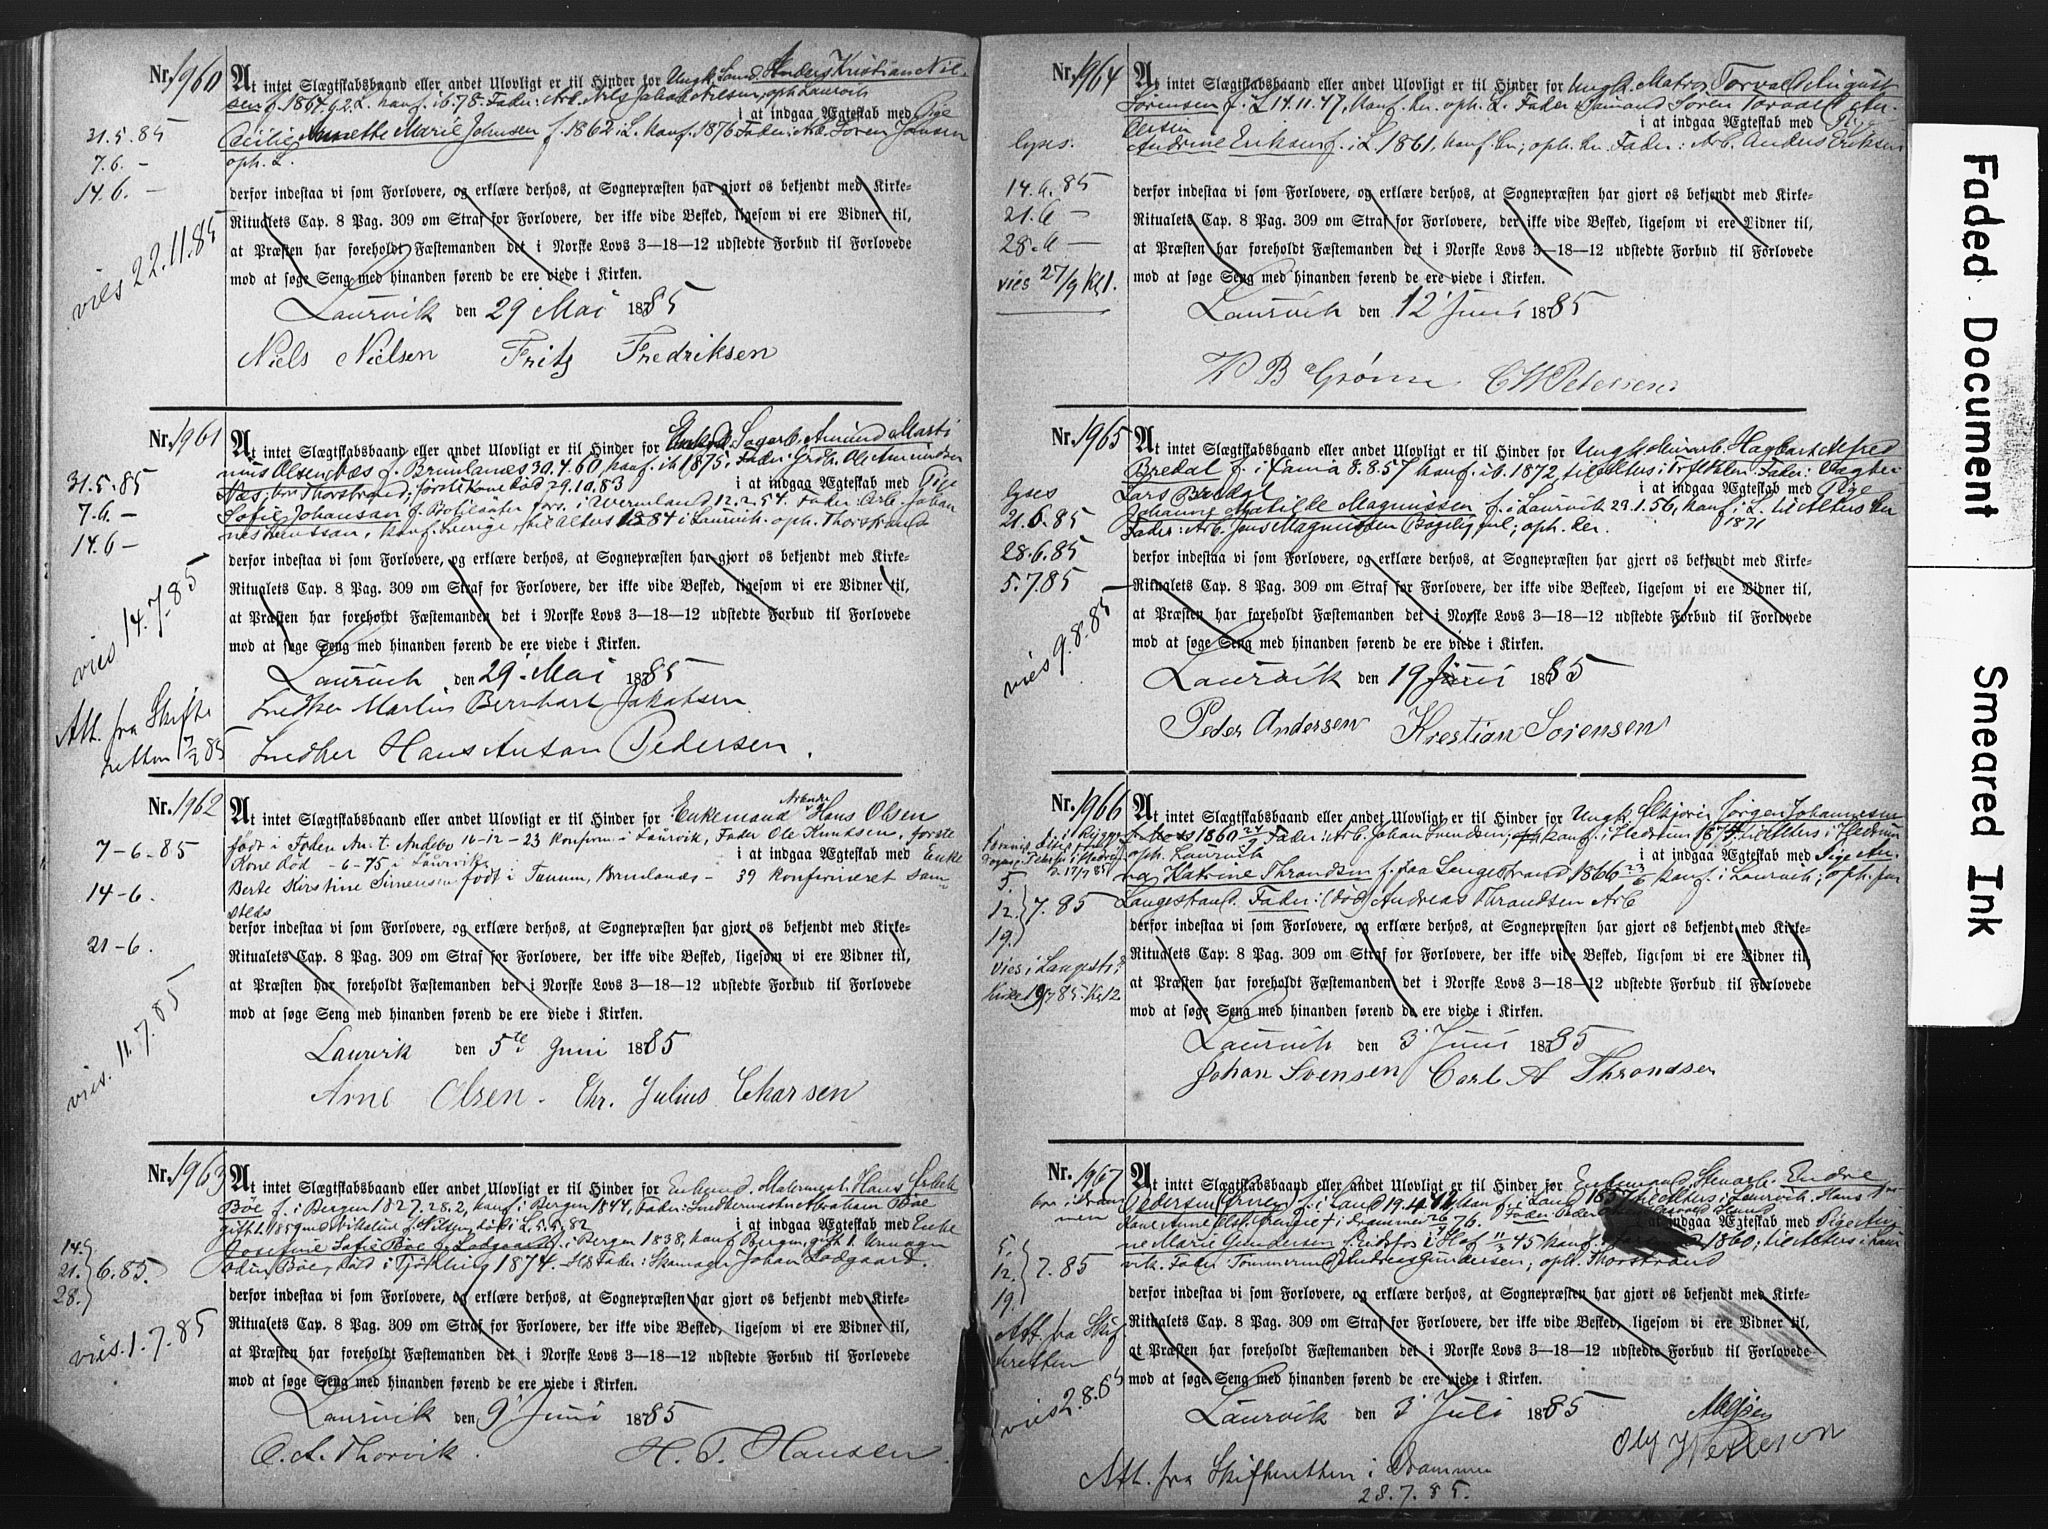 Nr. 1960
At intet Slægtskabsbaand eller andet Ulovligt er til Hinder for Ungk. Sømd. Anders Kristian Niel-
sen f. 1864 i L. konf. 78. Fader: Arb. Niels Jakob Nilsen, oph. Laurvik
i at indgaa Ægteskab med Pige
Cecilie Annette Marie Johnsen f. 1862 i L. konf. 1876 Fader: Arb. Søren Johnsen
oph. L.
31.5.85
7.6. —
14.6. —
vies 22.11.85
derfor indestaa vi som Forlovere, og erklære derhos, at Sognepræsten har gjort os bekjendt med Kirke-
Ritualets Cap. 8 Pag. 309 om Straf for Forlovere, der ikke vide Besked, ligesom vi ere Vidner til,
at Præsten har foreholdt Fæstemanden det i Norske Lovs 3—18—12 udstedte Forbud til Forlovede
mod at søge Seng med hinanden førend de ere viede i Kirken.
Laurvik den 29 Mai 1885
Niels Nielsen Fritz Fredriksen
Nr. 1961
At intet Slægtskabsbaand eller andet Ulovligt er til Hinder for Enkem. Sagarb. Amund Marti
nius Olsen Næs f. Brunlanes 30.4.60, konf. 1875, Fader: Grdb. Ole Amundsen
Næs, bor Thorstrand, første Kone død 29.10.83
i at indgaa Ægteskab med Pige
Sofie Johansen f. i Wermland 12.2.54. Fader: Arb. Johan
konf. Sverige, til Alters 1884 i Laurvik. oph. Thorstrand
31.5.85
7.6 —
14.6 —
vies 14.7.85
Att. fra Skifte
retten 7/7 85
derfor indestaa vi som Forlovere, og erklære derhos, at Sognepræsten har gjort os bekjendt med Kirke-
Ritualets Cap. 8 Pag. 309 om Straf for Forlovere, der ikke vide Besked, ligesom vi ere Vidner til,
at Præsten har foreholdt Fæstemanden det i Norske Lovs 3—18—12 udstedte Forbud til Forlovede
mod at søge Seng med hinanden førend de ere viede i Kirken.
Laurvik den 29 Mai 1885
Snedker Martin Bernhart Jakobsen
Snedker Hans Anton Pedersen.
Nr. 1962
At intet Slægtskabsbaand eller andet Ulovligt er til Hinder for Enkemand Arbeider Hans Olsen
født i Foden An. t. Andebo 16-12-23 konform i Laurvik, Fader Ole Knudsen, første
Kone død -6-75 i Laurvik
i at indgaa Ægteskab med Enke
Berte Kirstine Simensen født i Tanum, Brunlanes - 39 konfirmeret sam-
steds
7-6-85
14-6.
21-6.
vies. 11.7.85
derfor indestaa vi som Forlovere, og erklære derhos, at Sognepræsten har gjort os bekjendt med Kirke-
Ritualets Cap. 8 Pag. 309 om Straf for Forlovere, der ikke vide Besked, ligesom vi ere Vidner til,
at Præsten har foreholdt Fæstemanden det i Norske Lovs 3—18—12 udstedte Forbud til Forlovede
mod at søge Seng med hinanden førend de ere viede i Kirken.
Laurvik den 5te Juni 1885
Arne Olsen. Chr. Julius Eharsen
Nr. 1963
At intet Slægtskabsbaand eller andet Ulovligt er til Hinder for Enkemd. Malermest. Hans
Bøe f. i Bergen 1827.28.2, konf. i Bergen 1844, Fader: Snedkermester Abraham Bøe
gift 1. 1859 med Nikoline f. Nilsen, død i L. 5.5.82
i at indgaa Ægteskab med Enke
Josefine Sofie Bøe f. Lodgaard f. i Bergen 1838, konf. Bergen, gift 1. Urmager
Odin Bøe, død i Fjötling 1874. Fader: Skomager Johan Lodgaard.
14.
21. 6.85.
28.
vies. 1.7.85
derfor indestaa vi som Forlovere, og erklære derhos, at Sognepræsten har gjort os bekjendt med Kirke-
Ritualets Cap. 8 Pag. 309 om Straf for Forlovere, der ikke vide Besked, ligesom vi ere Vidner til,
at Præsten har foreholdt Fæstemanden det i Norske Lovs 3—18—12 udstedte Forbud til Forlovede
mod at søge Seng med hinanden førend de ere viede i Kirken.
Laurvik den 9 Juni 1885
C. A. Thorvik. H. T. Hansen.
Nr. 1964
At intet Slægtskabsbaand eller andet Ulovligt er til Hinder for Ungk. Matros Torvald August
Sørensen f. i L. 14.11.47, konf. her oph. L. Fader Sømand Søren Torvald An-
dersen
i at indgaa Ægteskab med Pige
Andrine Eriksen f. i L. 1861, konf. her; oph. her. Fader: Arb. Anders Eriksen
lyses.
14.6.85
21.6 —
28.6 —
vies 27/9 Kl 1.
derfor indestaa vi som Forlovere, og erklære derhos, at Sognepræsten har gjort os bekjendt med Kirke-
Ritualets Cap. 8 Pag. 309 om Straf for Forlovere, der ikke vide Besked, ligesom vi ere Vidner til,
at Præsten har foreholdt Fæstemanden det i Norske Lovs 3—18—12 udstedte Forbud til Forlovede
mod at søge Seng med hinanden førend de ere viede i Kirken.
Laurvik den 12 Juni 1885
B Grønn C W Petersen
Nr. 1965
At intet Slægtskabsbaand eller andet Ulovligt er til Hinder for Ungk. Hagbart Alfred
Bredal f. i 8.8.57 konf. 1872, til Alters Fader:
Lars Bredal
i at indgaa Ægteskab med Pige
Johanne Matilde Magnussen f. i Laurvik 29.1.56, konf. i L. til Alters her
1871
Fader: Arb. Jens Magnussen oph. her.
lyses
21.6.85
28.6.85
5.7.85
vies 9.8.85
derfor indestaa vi som Forlovere, og erklære derhos, at Sognepræsten har gjort os bekjendt med Kirke-
Ritualets Cap. 8 Pag. 309 om Straf for Forlovere, der ikke vide Besked, ligesom vi ere Vidner til,
at Præsten har foreholdt Fæstemanden det i Norske Lovs 3—18—12 udstedte Forbud til Forlovede
mod at søge Seng med hinanden førend de ere viede i Kirken.
Laurvik den 19 Juni 1885
Peder Andersen Krestian Sørensen
Nr. 1966
At intet Slægtskabsbaand eller andet Ulovligt er til Hinder for Ungk. Jørgen Johannesen
1860 Fader: Arb. Johan konf. i Hedrum til Alters i Hedrum
oph. Laurvik
i at indgaa Ægteskab med Pige An-
na Katrine Thrandsen f. paa Langestrand 1866 konf. i Laurvik; oph. paa
Langestrand. Fader: (død) Andreas Thrandsen Arb
5.
12. 7.85
19.
vies i Langestr.
Kirke 19/7 85. Kl 12
derfor indestaa vi som Forlovere, og erklære derhos, at Sognepræsten har gjort os bekjendt med Kirke-
Ritualets Cap. 8 Pag. 309 om Straf for Forlovere, der ikke vide Besked, ligesom vi ere Vidner til,
at Præsten har foreholdt Fæstemanden det i Norske Lovs 3—18—12 udstedte Forbud til Forlovede
mod at søge Seng med hinanden førend de ere viede i Kirken.
Laurvik den 3 Juni 1885
Johan Svensen Carl A Throndsen
Nr. 1967
At intet Slægtskabsbaand eller andet Ulovligt er til Hinder for Enkemand, Stenarb. Endre
Pedersen f. i Land konf. i Land til Alters i Laurvik. Hans
Kone Anne i Drammen 76. Fader: Peder
i at indgaa Ægteskab med Pige An-
ne Marie Gundersen f. i Hof 45 konf. 1860; til Alters i Laur
vik. Fader Tømmerm. Andreas Gundersen; oph. Thorstrand
bor i Dram
men
5.
12. 7.85
19.
Att. fra Skif
teretten
vies 2.8.85
derfor indestaa vi som Forlovere, og erklære derhos, at Sognepræsten har gjort os bekjendt med Kirke-
Ritualets Cap. 8 Pag. 309 om Straf for Forlovere, der ikke vide Besked, ligesom vi ere Vidner til,
at Præsten har foreholdt Fæstemanden det i Norske Lovs 3—18—12 udstedte Forbud til Forlovede
mod at søge Seng med hinanden førend de ere viede i Kirken.
Laurvik den 3 Juli 1885
Att. fra Skifteretten i Drammen
28.7.85.
Faded Document
Smeared Ink